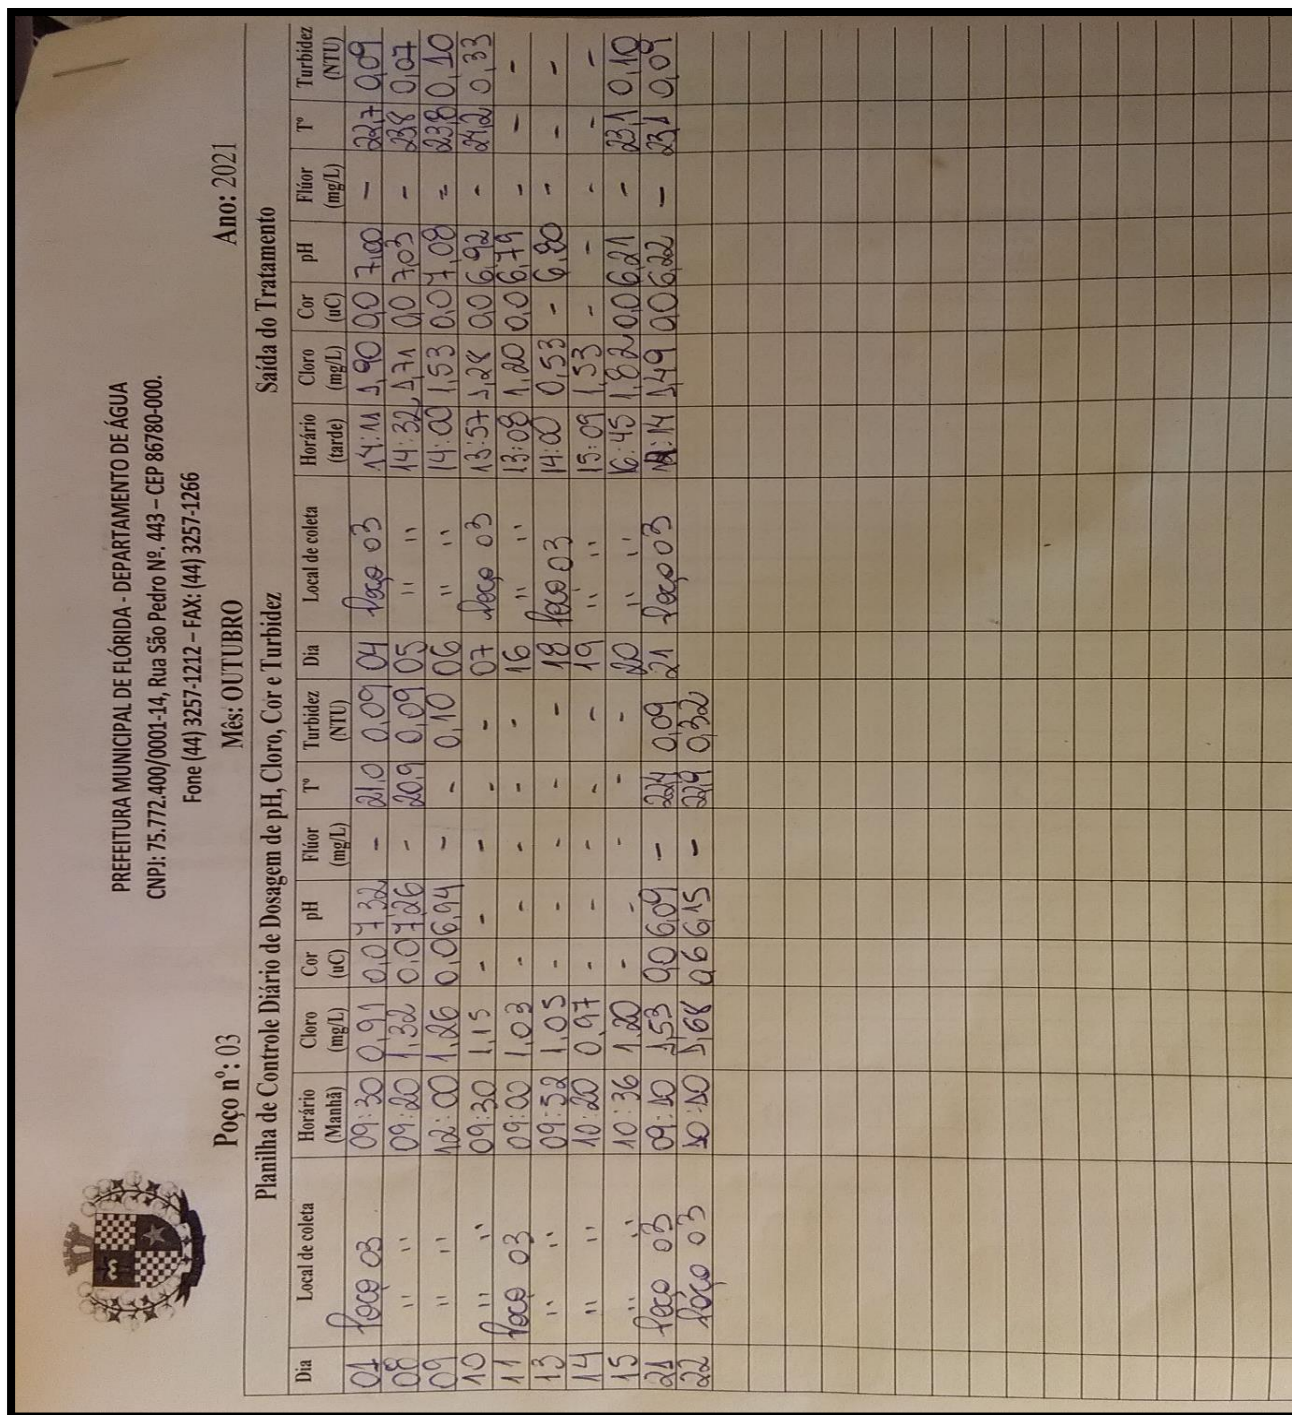 PREFEITURA MUNICIPAL DE FLÓRIDA - DEPARTAMENTO DE ÁGUA
CNPJ: 75.772.400/0001-14, Rua São Pedro Nº. 443 – CEP 86780-000.
Fone (44) 3257-1212 – FAX: (44) 3257-1266
Poço nº: 03 Mês: OUTUBRO Ano: 2021
Planilha de Controle Diário de Dosagem de pH, Cloro, Cor e Turbidez Saída do Tratamento
Dia Local de coleta Horário (Manhã) Cloro (mg/L) Cor (uC) pH Flúor (mg/L) Tº Turbidez (NTU) Dia Local de coleta Horário (tarde) Cloro (mg/L) Cor (uC) pH Flúor (mg/L) Tº Turbidez (NTU)
01 Poço 03 09:30 0,91 0,0 7,32 - 21,0 0,09 04 Poço 03 14:11 1,90 0,0 7,00 - 22,7 0,09
08 " " 09:20 1,32 0,0 7,26 - 20,9 0,09 05 " " 14:32 1,71 0,0 7,03 - 23,8 0,07
09 " " 12:00 1,26 0,0 6,94 - - 0,10 06 " " 14:00 1,53 0,0 7,08 = 23,8 0,10
10 " " 09:30 1,15 - - - - - 07 Poço 03 13:57 1,28 0,0 6,92 - 24,2 0,33
11 Poço 03 09:00 1,03 - - - - - 16 " " 13:08 1,20 0,0 6,79 - - -
13 " " 09:52 1,05 - - - - - 18 Poço 03 14:00 0,53 - 6,80 - - -
14 " " 10:20 0,97 - - - - - 19 " " 15:09 1,53 - - - - -
15 " " 10:36 1,20 - - - - - 20 " " 16:45 1,82 0,0 6,21 - 23,1 0,10
21 Poço 03 09:10 1,53 0,0 6,09 - 22,4 0,09 21 Poço 03 :14 1,49 0,0 6,22 - 23,1 0,09
22 Poço 03 10:10 1,68 0,6 6,15 - 22,9 0,32